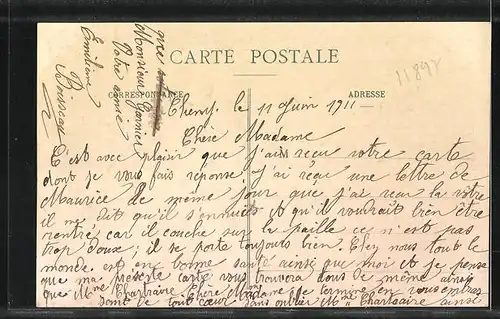 CARTE POSTALE
CORRESPONDANCE
ADRESSE
11898
Cheny, le 11 Juin 1911
Chère Madame
C'est avec plaisir que j'ai reçu votre carte
dont je vous fais réponse J'ai reçu une lettre de
Maurice de même jour que j'ai reçu la votre
il me dit qu'il s'ennuie et qu'il voudrait bien être
rentré car il couche sur la paille ce n'est pas
trop doux; il se porte toujours bien. Chez nous tout le
monde est en bonne santé ainsi que moi et je pense
que ma présente carte vous trouvera tous de même ainsi
que Mme Chartraire Chère Madame je termine en vous embras
sant de tout cœur sans oublier Mme Chartraire ainsi
que
Monsieur Garnier
Votre amie
Emilienne
Boisseau